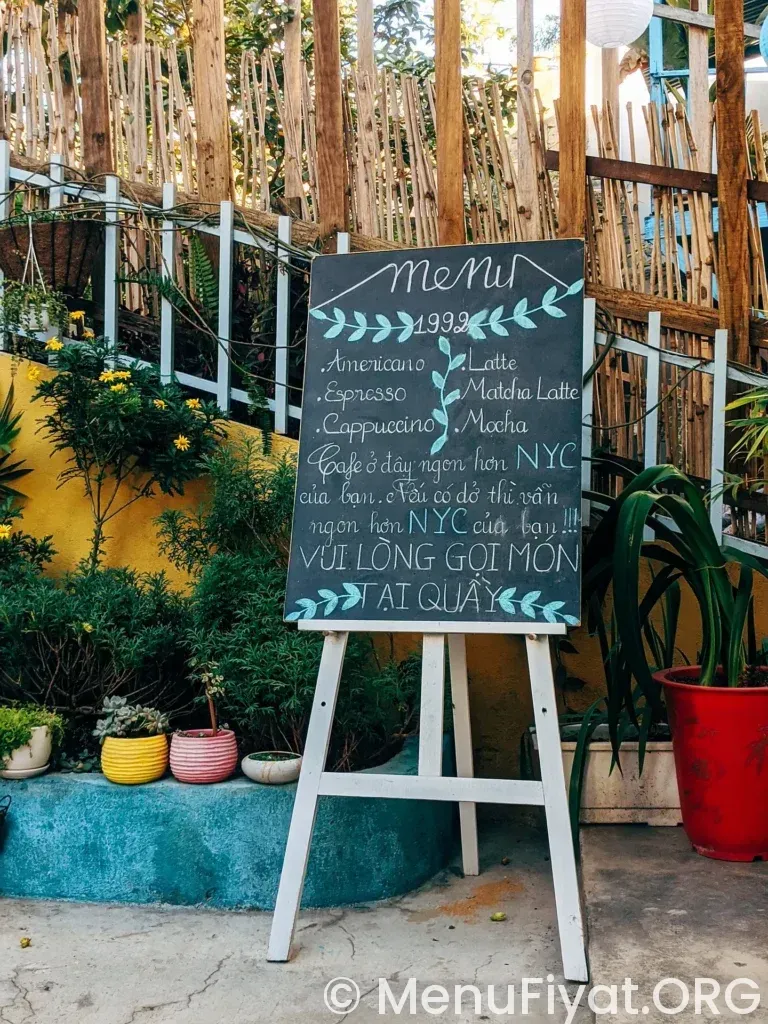 Menu
1992
.Americano
.Espresso
.Cappuccino
.Latte
.Matcha Latte
.Mocha
Cafe ở đây ngon hơn NYC
của bạn. Nếu có dở thì vẫn
ngon hơn NYC của bạn !!!
VUI LÒNG GỌI MÓN
TẠI QUẦY
© MenuFiyat.ORG